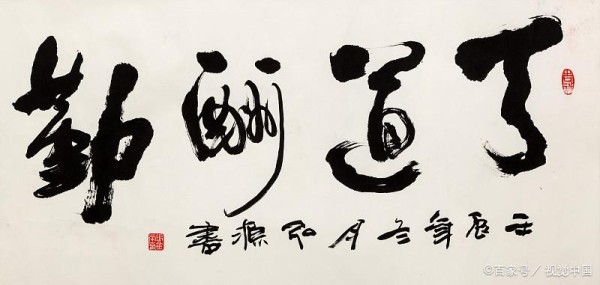 天道酬勤
壬辰年冬月弘源書
©百家号/视觉中国